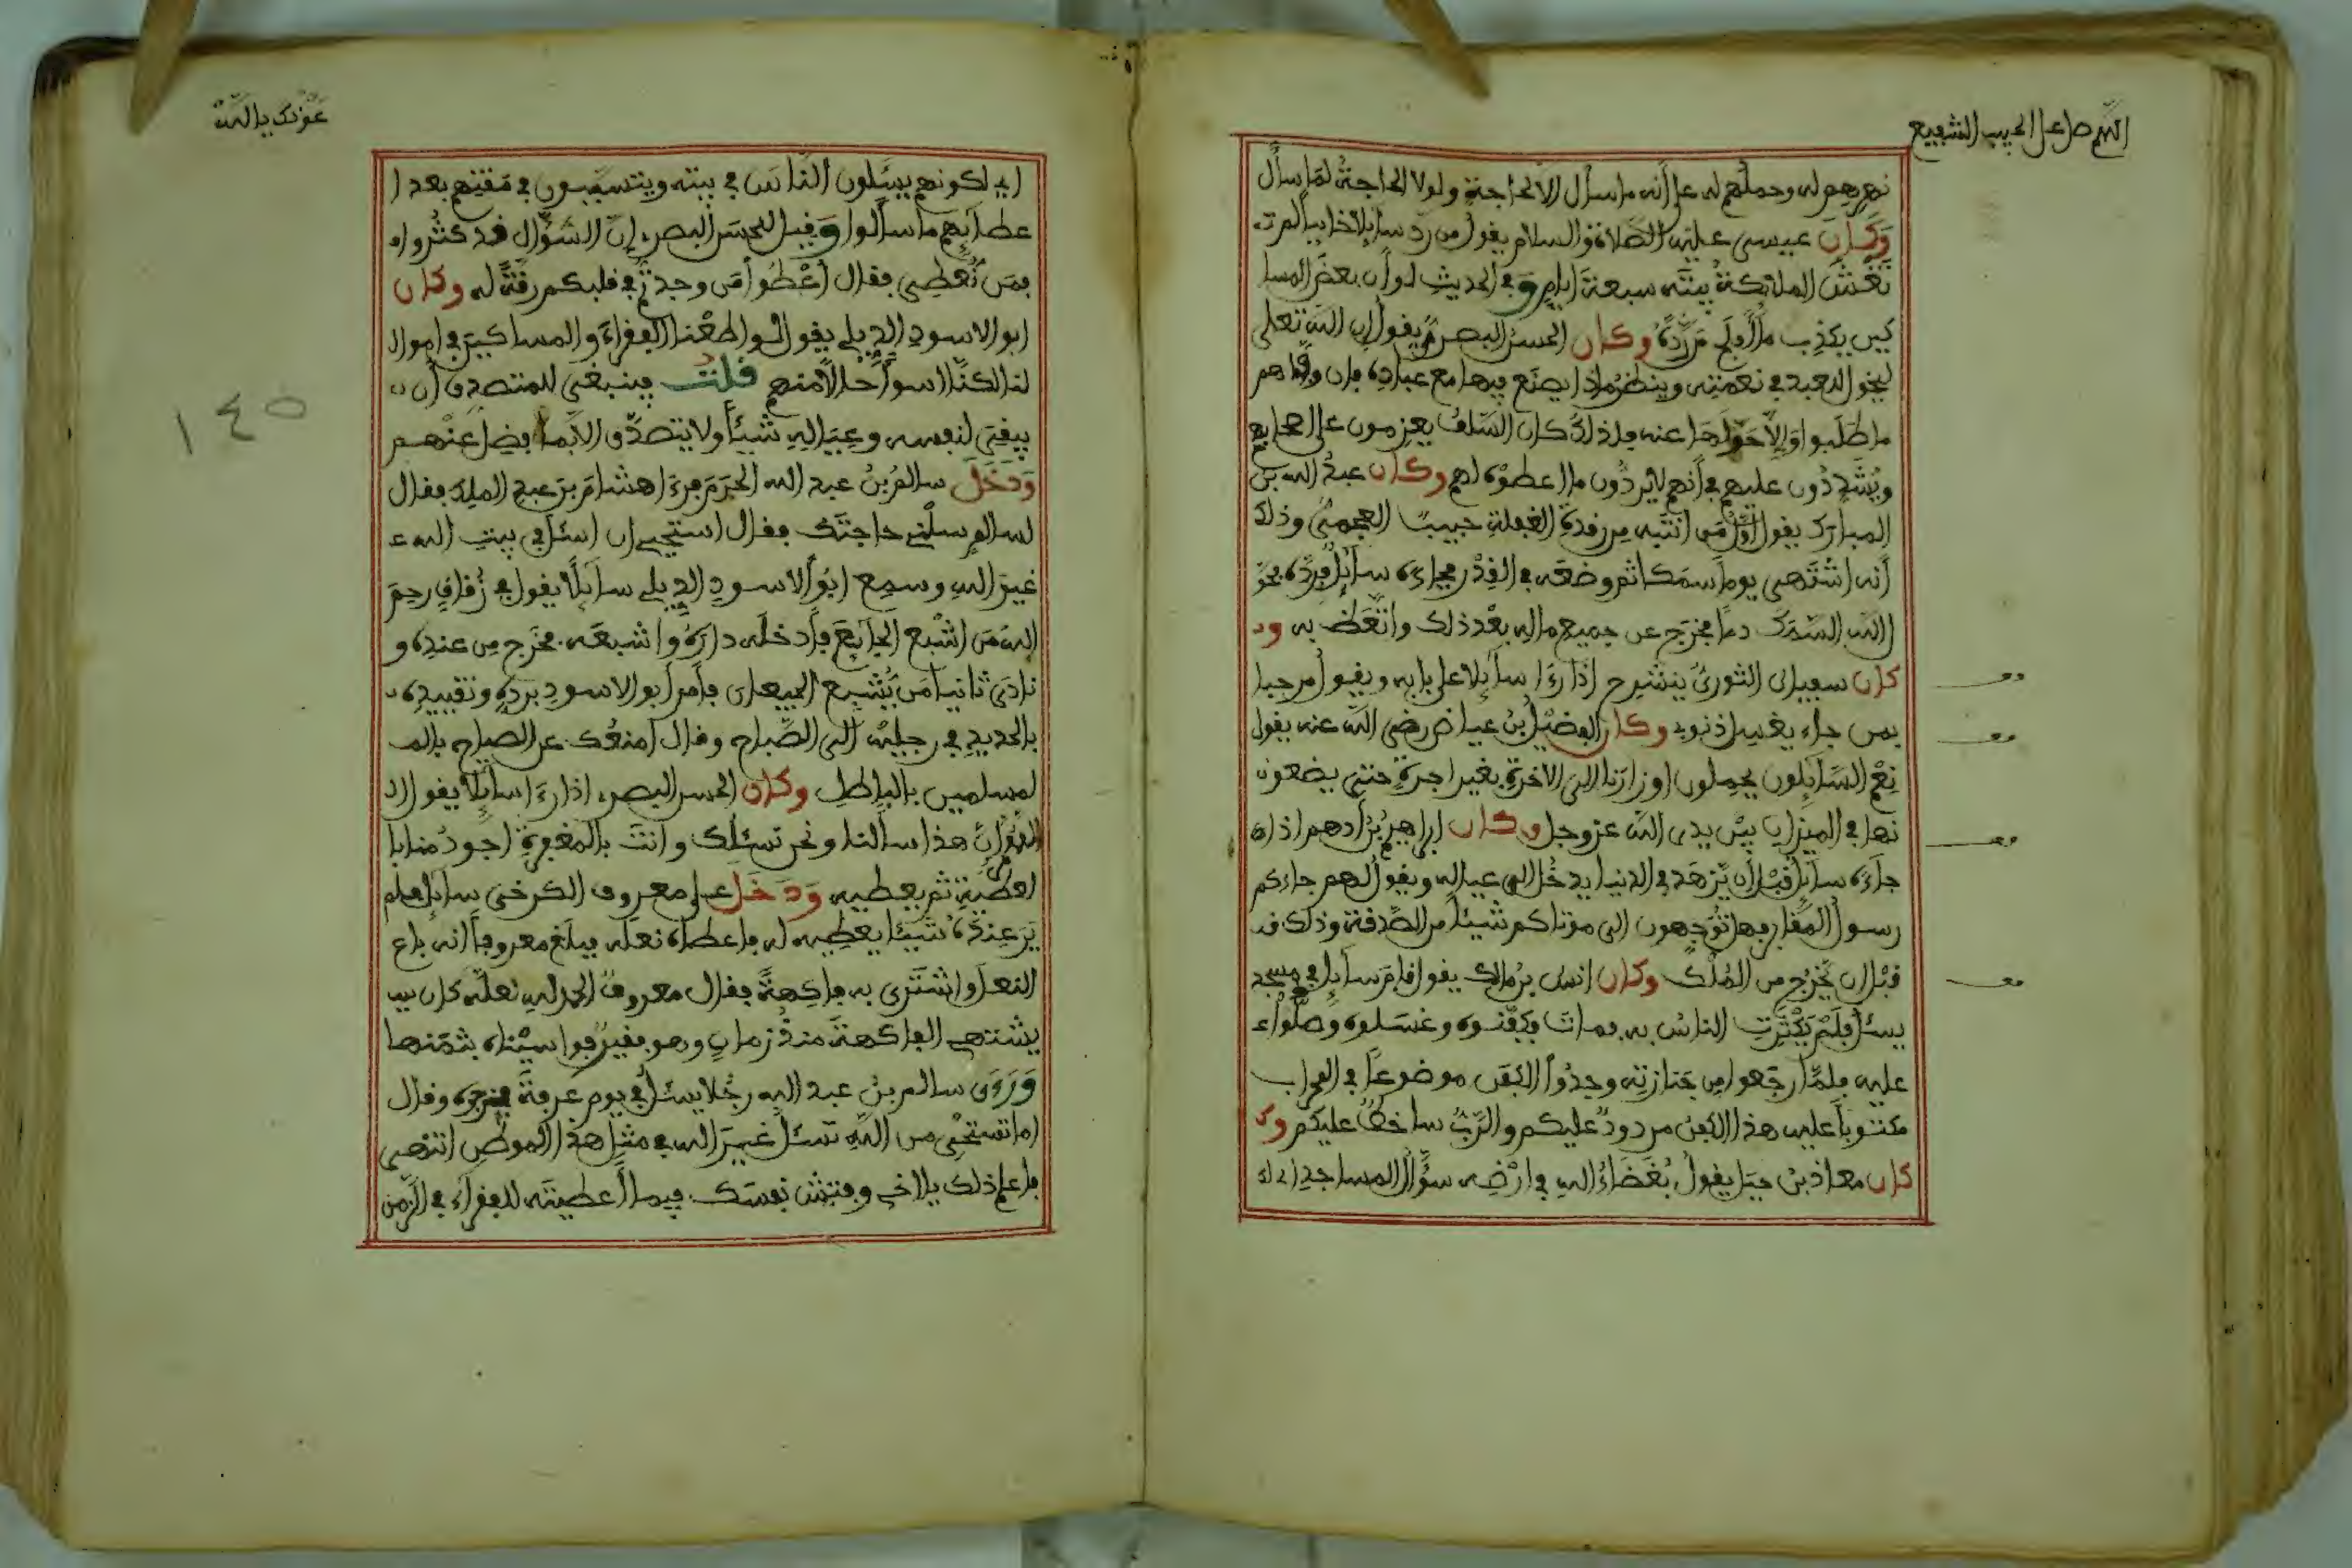 اللهم صل على الحبيب الشفيع
نهرهم له وحملهم له على أنه ما سأل الا لحاجة ولولا الحاجة لما سأل
وكان عيسى عليه الصلاة والسلام يقول من رد سائلا خائبا لم تـ
تغش الملائكة بيته سبعة ايام وفي الحديث لو ان بعض المسا
كين يكذب ما أفلح من رده وكان الحسن البصري يقول ان الله تعلى
ليخول العبد في نعمته وينظر ماذا يصنع فيها مع عباده فان وفاهم
ما طلبوا وإلا حولها عنه فلذلك كان السلف يعزمون على اصحابهم
ويشددون عليهم في أنهم لا يردون ما اعطوه لهم وكان عبد الله بن
المبارك يقول اول من انتبه من رقدة الغفلة حبيب العجمي وذلك
أنه اشتهى يوما سمكا ثم وضعه في القدر فجاءه سائل فرده فحو
الله السمك دما فخرج عن جميع ماله بعد ذلك واتعظ به و
كان سفيان الثوري ينشرح اذا رءا سائلا على بابه ويقول مرحبا
بمن جاء يغسل ذنوبي وكان الفضيل بن عياض رضي الله عنه يقول
نعم السائلون يحملون اوزارنا الى الاخرة بغير اجرة حتى يضعو
نها في الميزان بين يدي الله عز وجل وكان ابراهيم بن أدهم اذا
جاءه سائل قبل أن يزهد في الدنيا يدخل الى عياله ويقول لهم جاءكم
رسول المقابر فهل توجهون الى موتاكم شيئا من الصدقة وذلك
قبل ان يخرج من الملك وكان انس بن مالك يقول قام سائل في مسجد
يسئل فلم يكترث الناس به فمات فكفنوه وغسلوه وصلوا ع
عليه فلما رجعوا من جنازته وجدوا الكفن موضوعا في المحراب
مكتوبا عليه هذا الكفن مردود عليكم والرب ساخط عليكم وكـ
كان معاذ بن جبل يقول بغضاء الله في ارضه سؤال المساجد
عونك يا الله
اي لكونهم يسئلون الناس في بيته ويتسببون في مقتهم بعد ا
عطائهم ما سألوا وقيل للحسن البصري إن السؤال قد كثروا
فمن نعطي فقال أعطوا من وجدتم في قلبكم رقة له وكان
ابو الاسود الديلي يقول لو اطعنا الفقراء والمساكين في اموا
لنا لكنا اسوأ حالا منهم قلت فينبغي للمتصدق أن
يبقي لنفسه وعياله شيئا ولا يتصدق الا بما فضل عنهم
ودخل سالم بن عبد الله الحرم فرءا هشام بن عبد الملك فقال
لسالم سلني حاجتك فقال استحيي ان اسئل في بيت الله
غير الله وسمع ابو الاسود الديلي سائلا يقول في زقاق رحم
الله من اشبع الجائع فأدخله داره واشبعه فخرج من عنده و
نادى ثانيا من يشبع الجيعان فأمر ابو الاسود برده وتقييده
بالحديد في رجليه الى الصباح وقال امنعك عن الصياح بالمـ
لمسلمين بالباطل وكان الحسن البصري اذا رءا سائلا يقول ا
إن هذا سألنا ونحن نسئلك وانت بالمغفرة اجود منا با
لعطية ثم يعطيه ودخل على معروف الكرخي سائل فلم
ير عنده شيئا يعطيه له فاعطاه نعله فبلغ معروفا أنه باع
النعل واشترى به فاكهة فقال معروف الحمد لله لعله كان
يشتهي الفاكهة منذ زمان وهو فقير فواسيناه بثمنها
وروى سالم بن عبد الله رجلا يسئل في يوم عرفة فزجره وقال
اما تستحي من الله تسئل غير الله في مثل هذا الموطن انتهى
فاعلم ذلك يا اخي وفتش نفسك فيما أعطيته للفقراء في الزمن
١٤٥